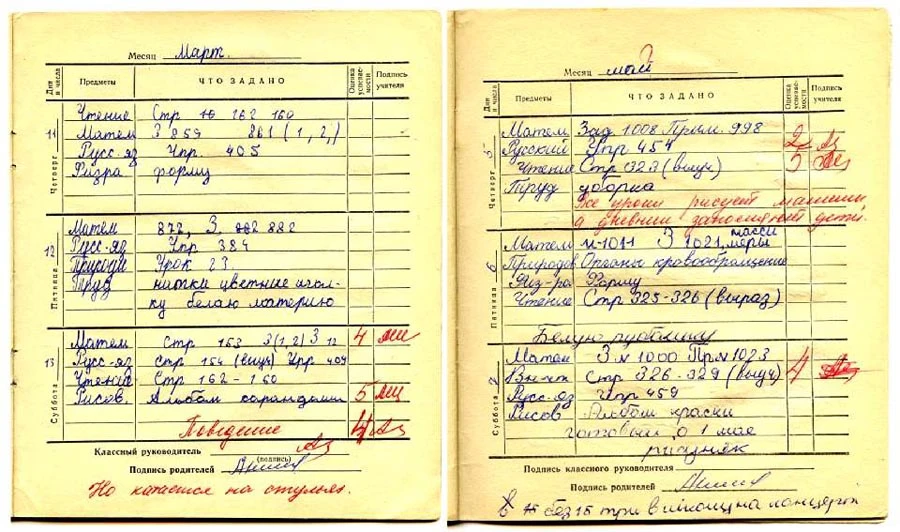 Месяц Март.
Дни и числа Предметы ЧТО ЗАДАНО Оценка успеваемости Подпись учителя
11 Четверг
Чтение Стр 162 160
Матем З 859 861 (1, 2,)
Русс-яз Упр. 405
Физра форму
12 Пятница
Матем 872, З, 882
Русс-яз Упр 384
Природ Урок 23
Труд нитки цветные игол-
ку белаю материю
13 Суббота
Матем Стр 153 З(1,2) З 12 4
Русс-яз Стр 154 (выуч) Упр 409
Чтение Стр 162-160
Рисов. Альбом карандаши 5
Поведение 4
Классный руководитель
(подпись)
Подпись родителей
Но катается на стульях.
Месяц май
Дни и числа Предметы ЧТО ЗАДАНО Оценка успеваемости Подпись учителя
5 Четверг
Матем Зад 1008 Прим. 998
Русский Упр 454 2
Чтение Стр 323 (выуч) 5
Труд уборка
Все уроки рисует машины,
а дневник заполняют дети.
6 Пятница
Матем №1011 З 1021, массы меры
Природов Органы кровообращение
Физ-ра Форму
Чтение Стр 325-326 (выраз)
Белую рубашку
7 Суббота
Матем З № 1000 Пр.№1023
Вн-чт Стр 326-329 (выуч) 4
Русс-яз Упр 459
Рисов Альбом краски
готовый о 1 мае
рисунок
Подпись классного руководителя
Подпись родителей
без 15 три в на концерт